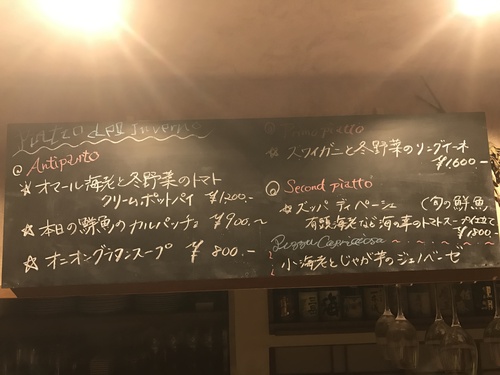 Piatto del Inverno
Antipasto
☆ オマール海老と冬野菜のトマト
クリームポットパイ ¥1200.-
☆ 本日の鮮魚のカルパッチョ ¥900.~
☆ オニオングラタンスープ ¥800.-
Primo piatto
☆ ズワイガニと冬野菜のリングイーネ
¥1,600-
Second piatto
☆ ズッパ ディ ペーシェ (旬の鮮魚
有頭海老など海の幸のトマトスープ仕立て
¥1,800.-
Pizza Capricciosa
小海老とじゃが芋のジェノベーゼ